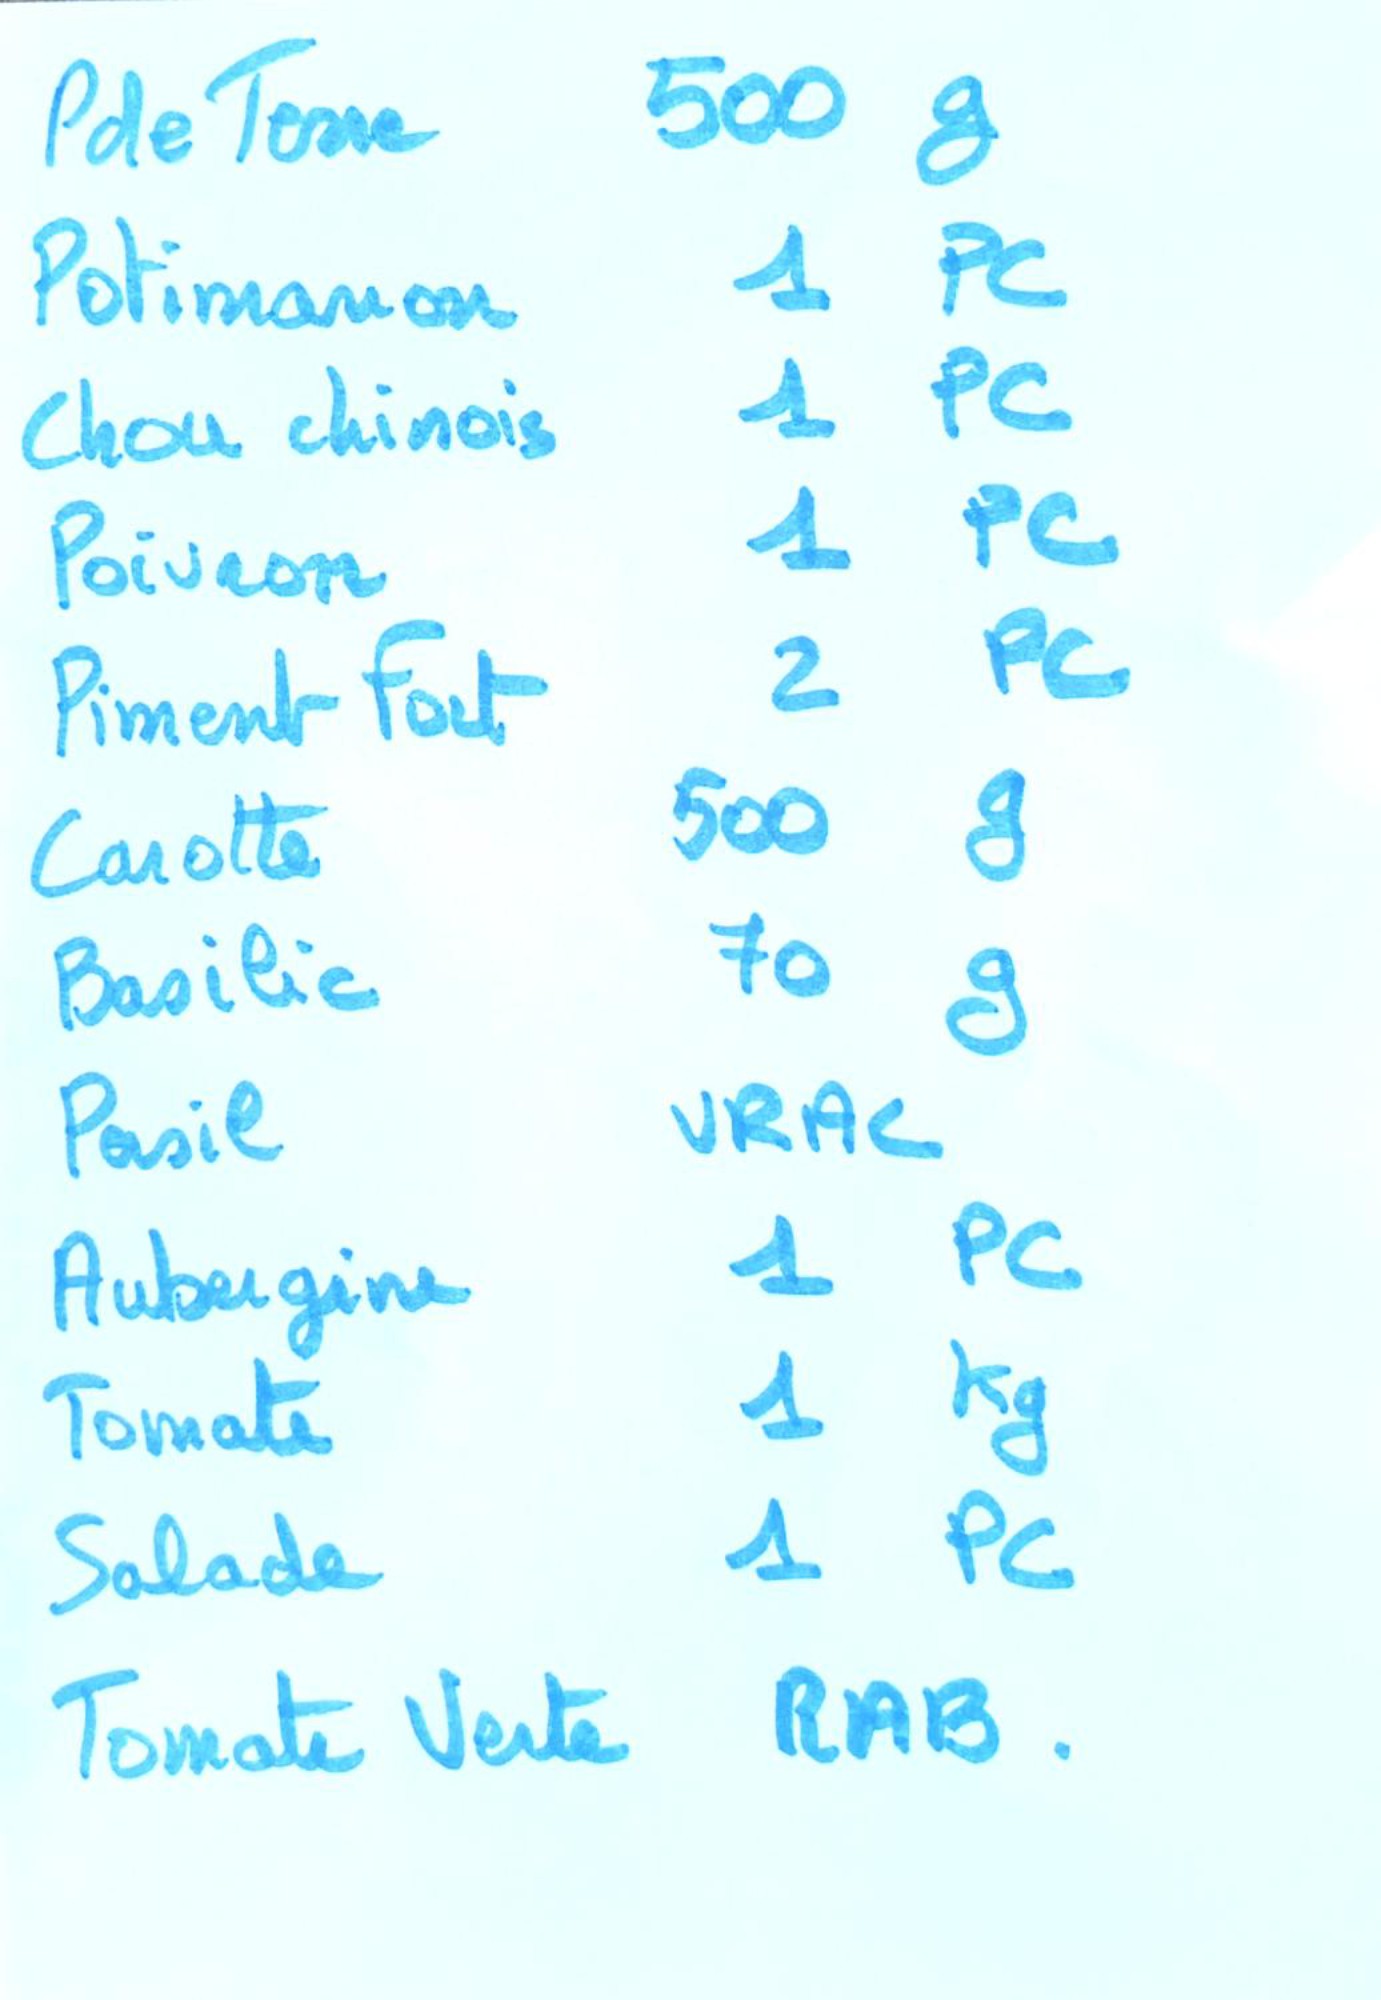 P de Terre 500 g
Potimarron 1 PC
Chou chinois 1 PC
Poivron 1 PC
Piment Fort 2 PC
Carotte 500 g
Basilic 70 g
Persil VRAC
Aubergine 1 PC
Tomate 1 kg
Salade 1 PC
Tomate Verte RAB.